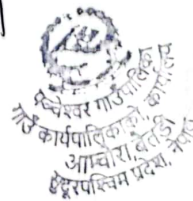 पञ्चेश्वर गाउँपालिका
गाउँ कार्यपालिकाको कार्यालय
आमचौरा, बैतडी
सुदूरपश्चिम प्रदेश, नेपाल